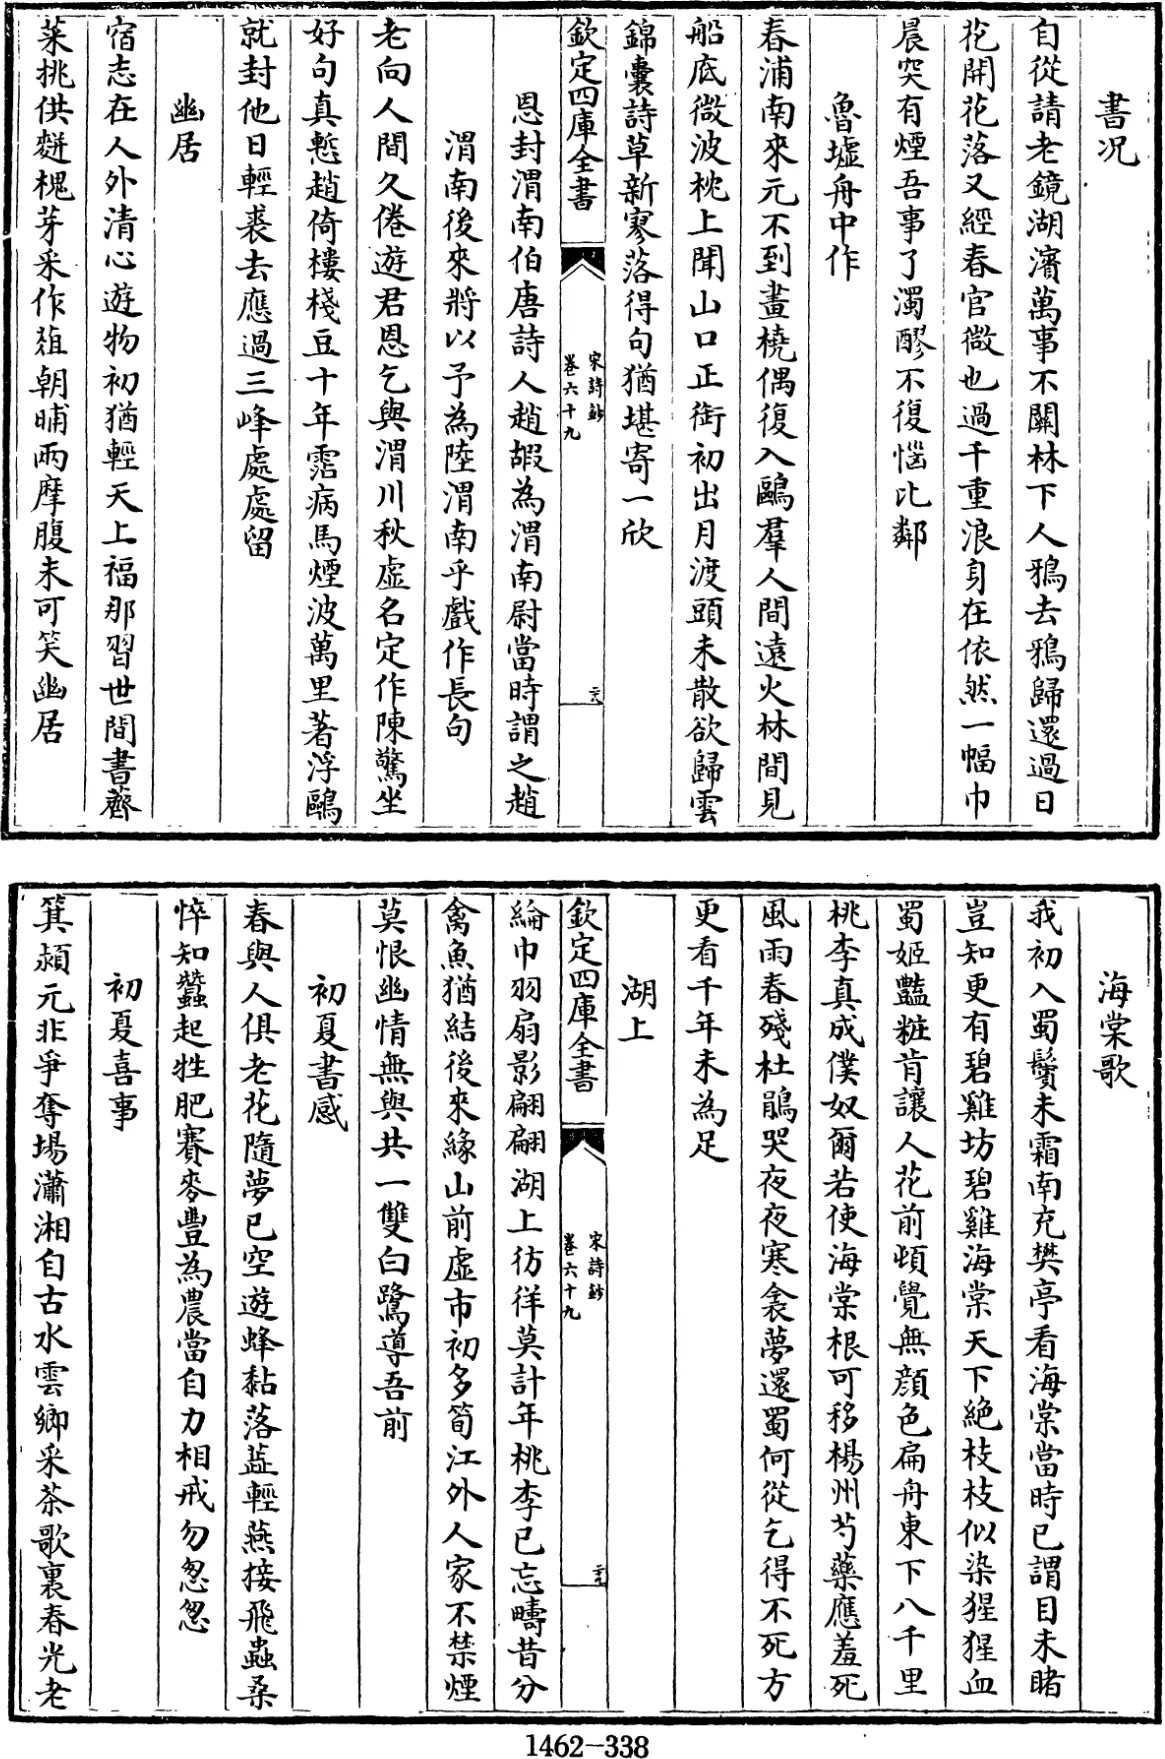 書况
自從請老鏡湖濱萬事不關林下人鴉去鴉歸還過日
花開花落又經春官微也過千重浪身在依然一幅巾
晨突有煙吾事了濁醪不復惱比鄰
魯墟舟中作
春浦南來元不到畫橈偶復入鷗羣人間遠火林間見
船底微波枕上聞山口正銜初出月渡頭未散欲歸雲
錦囊詩草新寥落得句猶堪寄一欣
欽定四庫全書
宋詩鈔
卷六十九
恩封渭南伯唐詩人趙嘏為渭南尉當時謂之趙
渭南後來將以予為陸渭南乎戲作長句
老向人間久倦遊君恩乞與渭川秋虛名定作陳驚坐
好句真慙趙倚樓棧豆十年霑病馬煙波萬里著浮鷗
就封他日輕裘去應過三峰處處留
幽居
宿志在人外清心遊物初猶輕天上福那習世間書薺
菜挑供餅槐芽采作葅朝晡兩摩腹未可笑幽居
海棠歌
我初入蜀鬢未霜南充樊亭看海棠當時已謂目未睹
豈知更有碧雞坊碧雞海棠天下絶枝枝似染猩猩血
蜀姬豔粧肯讓人花前頓覺無顔色扁舟東下八千里
桃李真成僕奴爾若使海棠根可移楊州芍藥應羞死
風雨春殘杜鵑哭夜夜寒衾夢還蜀何從乞得不死方
更看千年未為足
湖上
欽定四庫全書
宋詩鈔
卷六十九
綸巾羽扇影翩翩湖上彷徉莫計年桃李已忘疇昔分
禽魚猶結後來緣山前虛市初多筍江外人家不禁煙
莫恨幽情無與共一雙白鷺導吾前
初夏書感
春與人俱老花隨夢已空遊蜂黏落蘂輕燕接飛蟲桑
悴知蠶起牲肥賽麥豐為農當自力相戒勿怱怱
初夏喜事
箕潁元非爭奪場瀟湘自古水雲鄉采茶歌裏春光老
1462-338